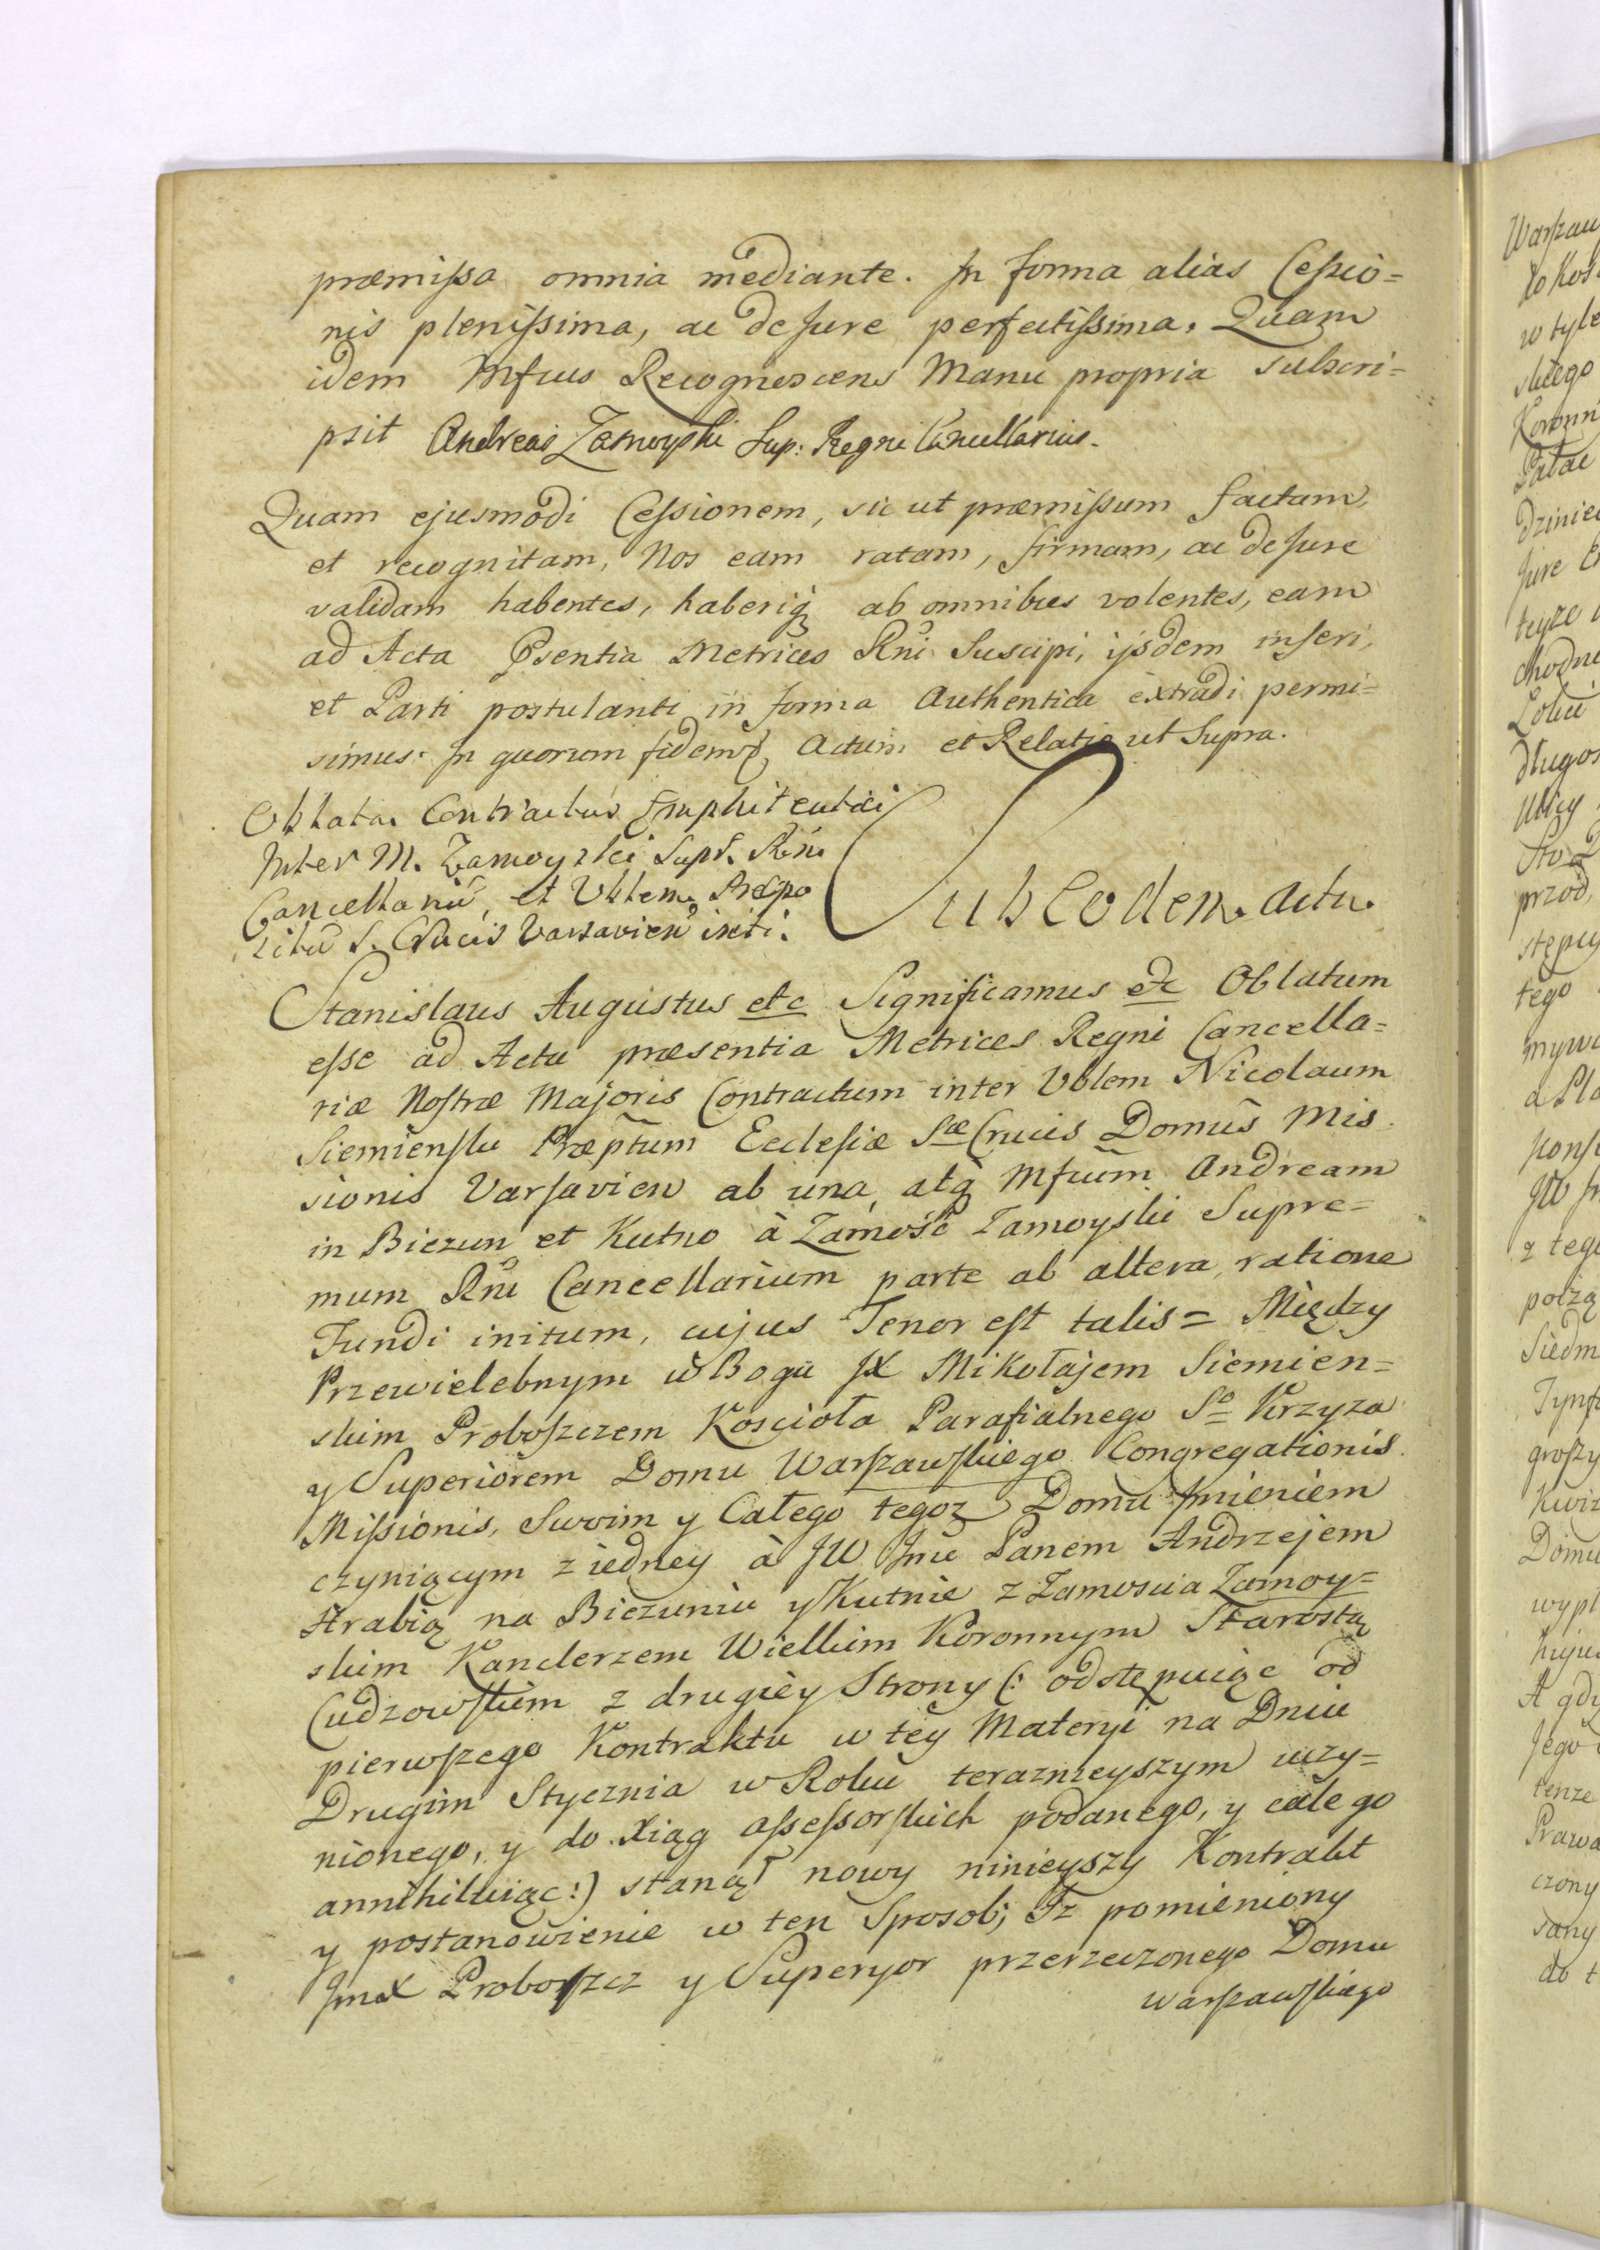 præmissa omnia mediante. In forma alias Cessio=
nis plenissima, ac de Jure perfectissima, Quam
idem Mfcus Recognoscens Manu propria subscri=
psit Andreas Zamoyski Sup: Regni Cancellarius.
Quam ejusmodi Cessionem, sic ut præmissum factam,
et recognitam, Nos eam ratam, firmam, ac de Jure
validam habentes, haberiq; ab omnibus volentes, eam
ad Acta Psentia Metrices Rni Suscipi, ijsdem inseri,
et Parti postulanti in forma Authentica extradi permi=
simus. In quorum fidem Actum et Relatio ut Supra.
Oblata Contractus Emphiteutici
Inter M. Zamoyski Supr. Rni
Cancellariũ, et Vblem Præpo
situ S. Crucis Varsavien initi.
Sub Eodem Actu.
Stanislaus Augustus etc Significamus etc Oblatum
esse ad Acta præsentia Metrices Regni Cancella=
riæ Nostræ Majoris Contractum inter Vblem Nicolaum
Siemiensku Præptum Ecclesiæ Stæ Crucis Domûs Mis
sionis Varsavien ab una, atq; Mfcum Andream
in Biezun et Kutno à Zamość Zamoyski Supre=
mum Rni Cancellarium parte ab altera, ratione
Fundi initum, cujus Tenor est talis= Między
Przewielebnym w Bogu JX Mikołajem Siemien=
skim Proboszczem Koscioła Parafialnego So Krzyza
y Superiorem Domu Warszawskiego Congregationis
Missionis, Swoim y Całego tegoz Domu Jmieniem
czyniącym z iedney à JW Jmć Panem Andrzejem
Hrabią na Biezuniu y Kutnie z Zamoscia Zamoy=
skim Kanclerzem Wielkim Koronnym Starostą
Cudzowskim z drugiey Strony (: odstępuiąc od
pierwszego Kontraktu w tey Materyi na Dniu
Drugim Stycznia w Roku teraznieyszym uczy=
nionego, y do Xiąg assessorskich podanego, y cale go
annihiluiąc :) stanął nowy ninieyszy Kontrakt
y postanowienie w ten Sposob; Iz pomieniony
Jmx Proboszcz y Superyor przerzeczonego Domu
Warszawskiego